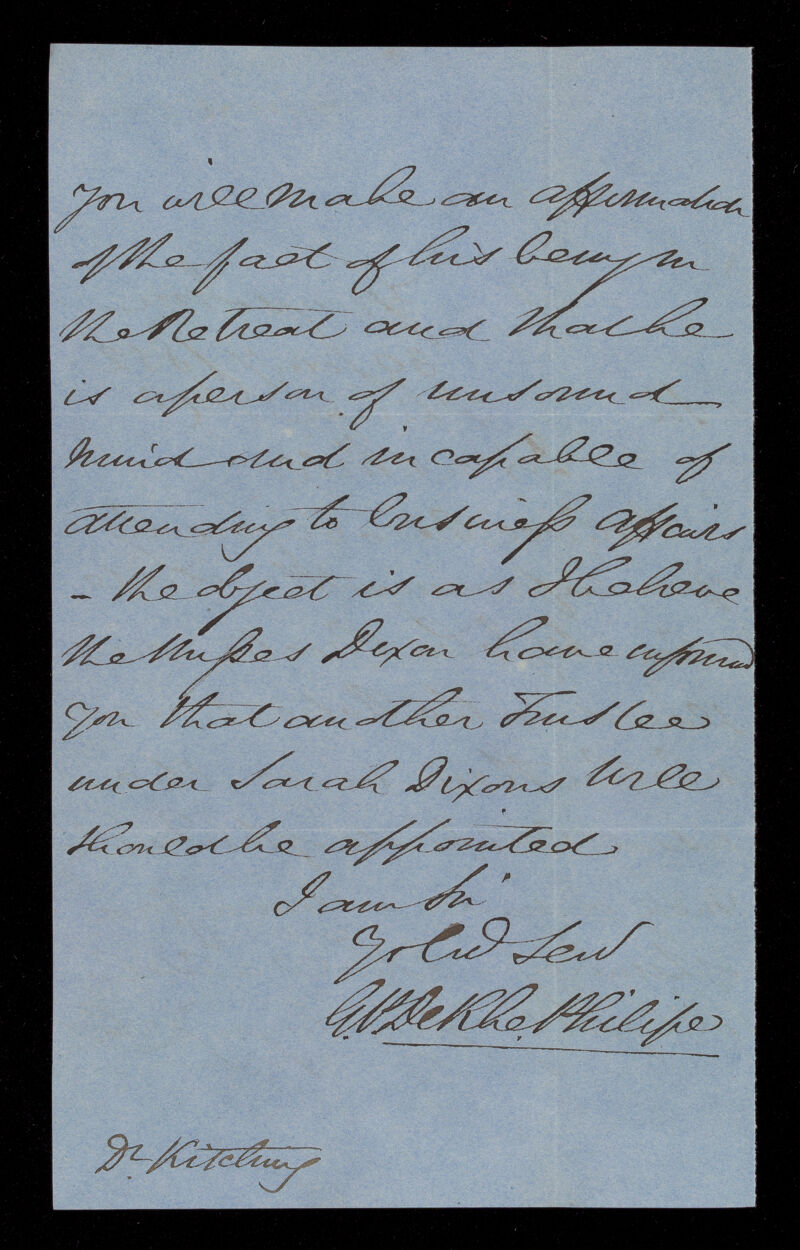 you will make an affirmation
of the fact of his being in
the Retreat and that he
is a person of unsound
mind and incapable of
attending to business affairs
- the object is as I believe
the Misses Dixon have informed
you that another Trustee
under Sarah Dixons Will
should be appointed
I am Sir
Yr Obdt Servt
Philipe
Dr Kitching